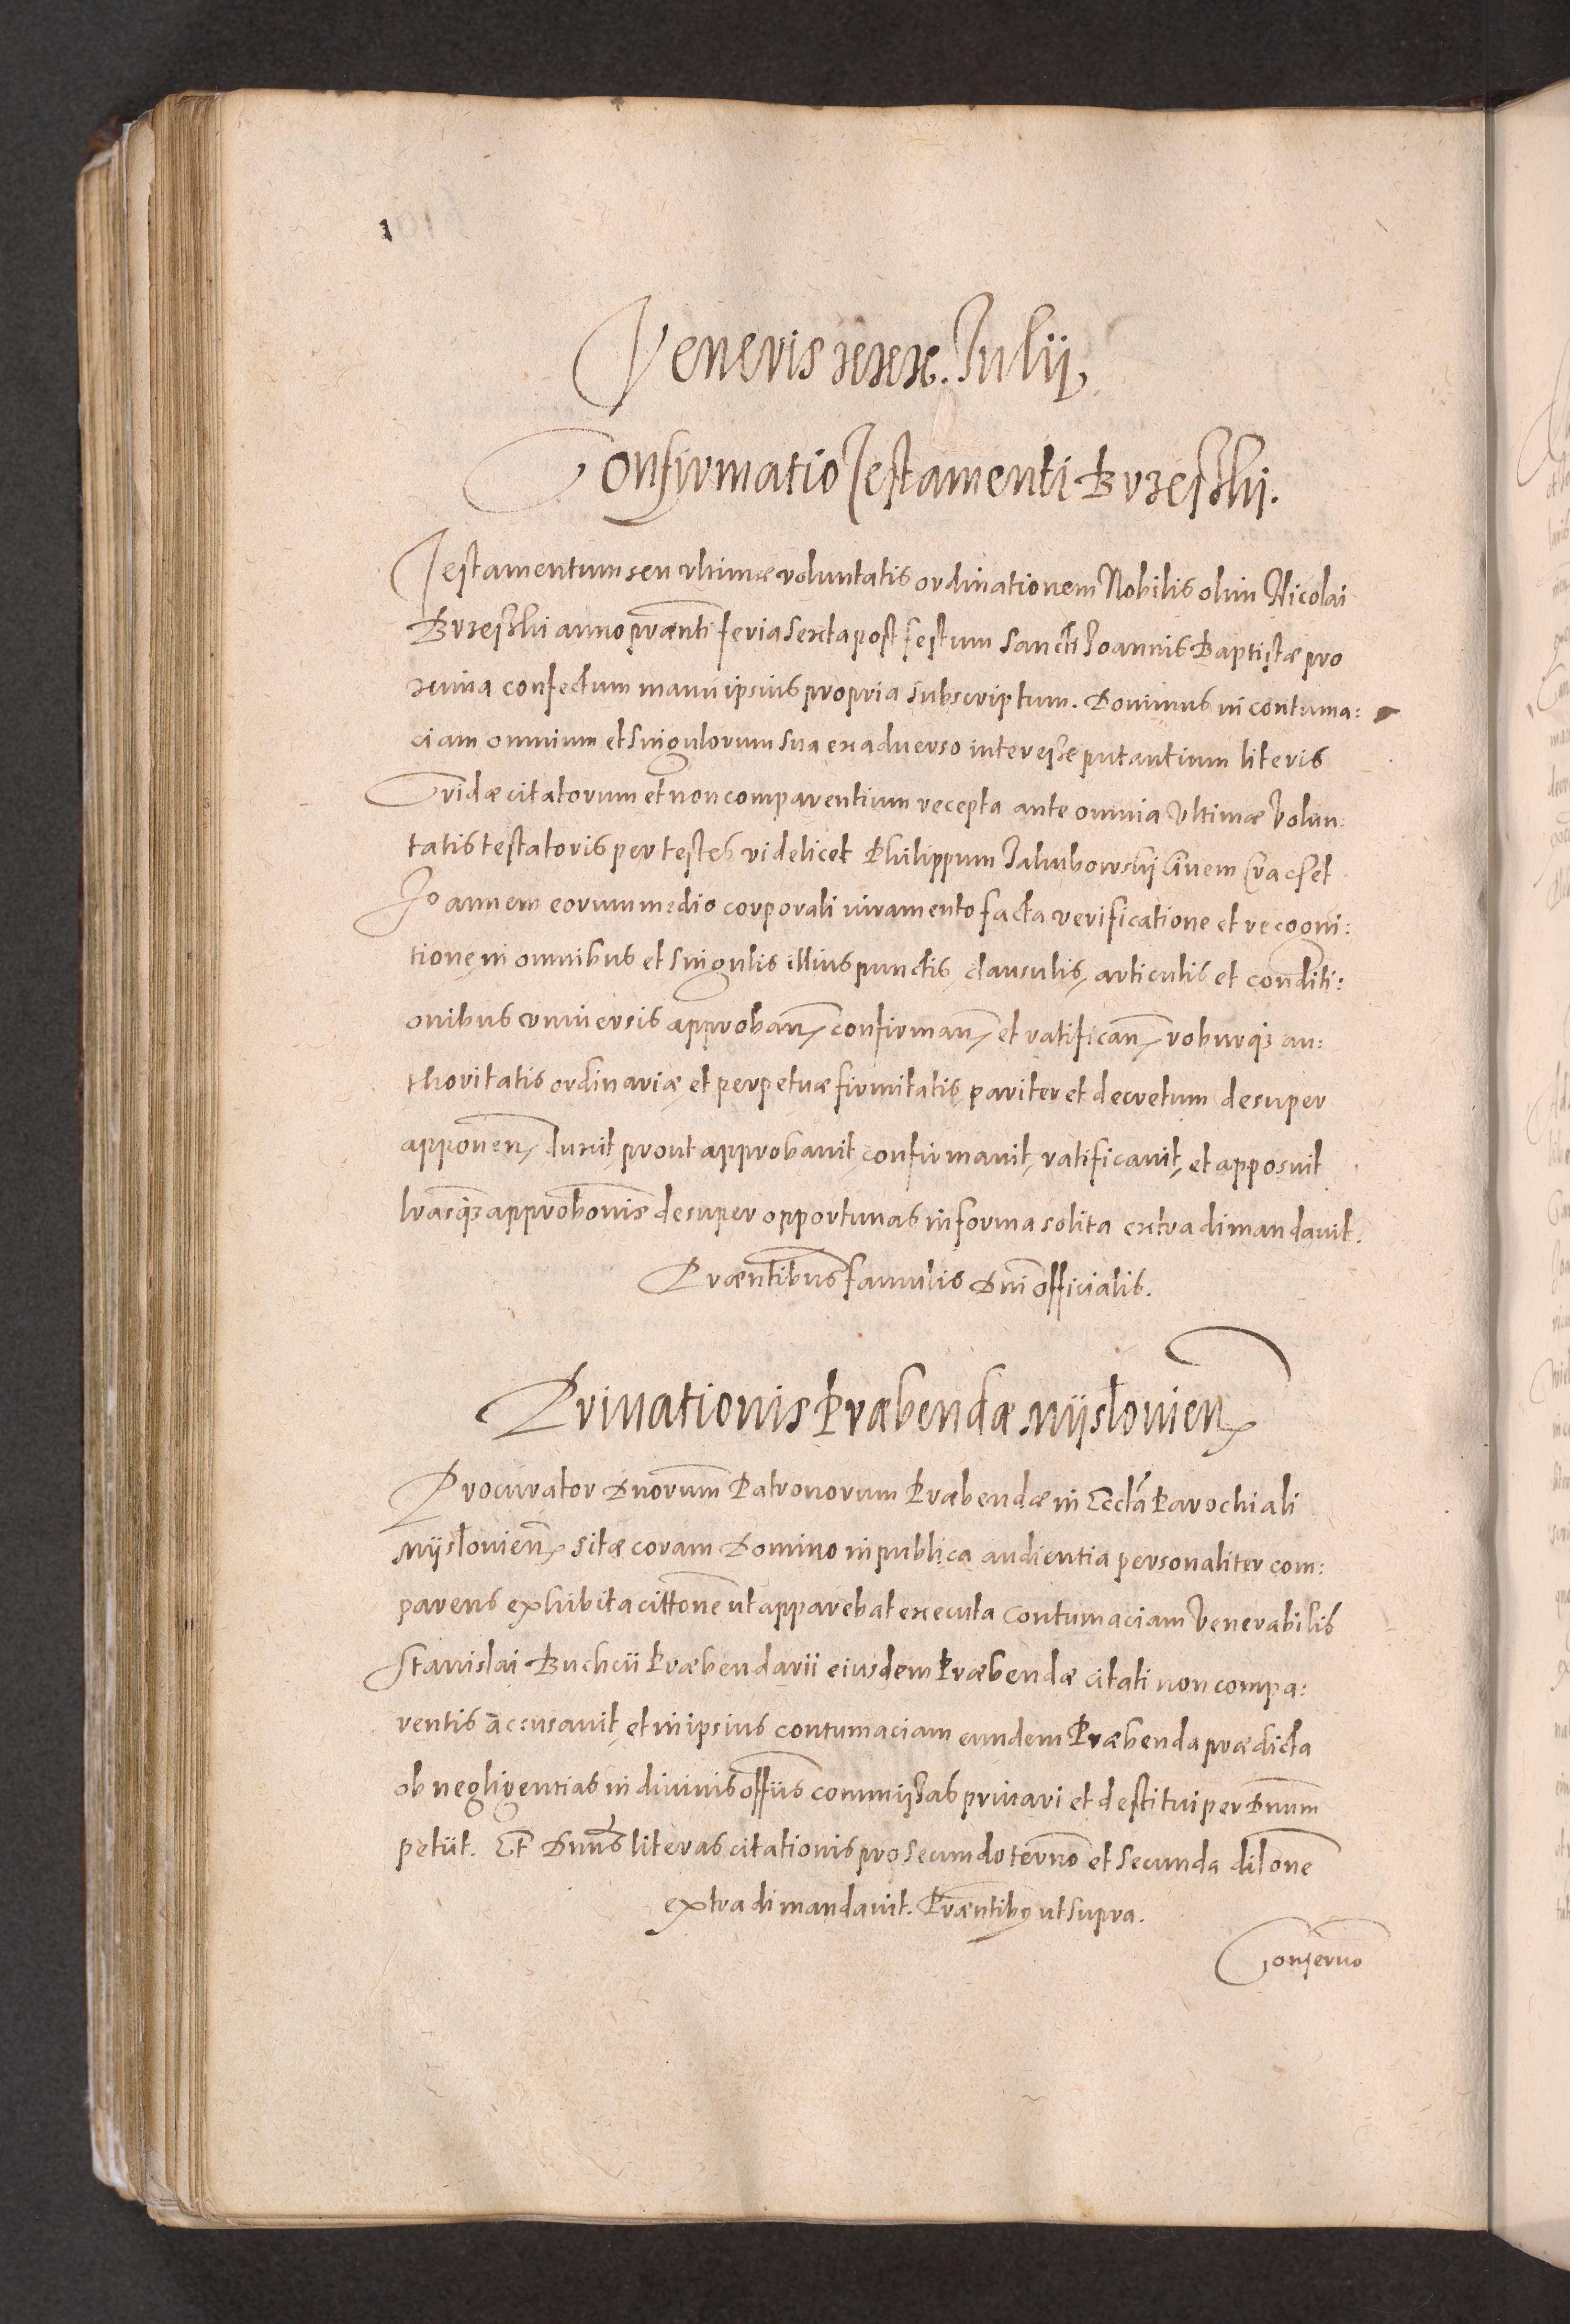 Veneris xxx. Julii.
Confirmatio Testamenti Brzeski.
Testamentum seu ultimæ voluntatis ordinationem Nobilis olim Nicolai
Brzeski anno prænti feria sexta post festum sancti Joannis Baptistæ pro
xima confectum manu ipsius propria subscriptum. Dominus in contuma:
ciam omnium et singulorum sua ex adverso interesse putantium literis
Cridæ citatorum et non comparentium recepta ante omnia Ultimæ Volun:
tatis testatoris per testes videlicet Philippum Jakubowskij Civem Crac et
Joannem eorum medio corporali iuramento facta verificatione et recogni:
tione in omnibus et singulis illius punctis, clausulis, articulis et conditi:
onibus universis approban, confirman, et ratifican, roburq3 au:
thoritatis ordinariæ et perpetuæ firmitatis pariter et decretum desuper
apponen, duxit, prout approbavit, confirmavit, ratificavit, et apposuit
lrasq3 approbonis desuper opportunas in forma solita extradi mandavit.
Præntibus famulis Dni officialis.
Privationis Præbendæ Mijsłovien
Procurator Dnorum Patronorum Præbendæ in Eccla Parochiali
Mijsłovien, sitæ coram Domino in publica audientia personaliter com:
parens exhibita cittone ut apparebat executa contumaciam Venerabilis
Stanislai Buchcii Præbendarii eiusdem Præbendæ citati non compa:
rentis accusavit, et in ipsius contumaciam eundem Præbenda prædicta
ob negligentias in divinis offiis commissas privari et destitui per Dnum
petiit. Et Dnus literas citationis pro secundo termo et secunda dilone
extradi mandavit. Præntibus ut supra.
Conservo